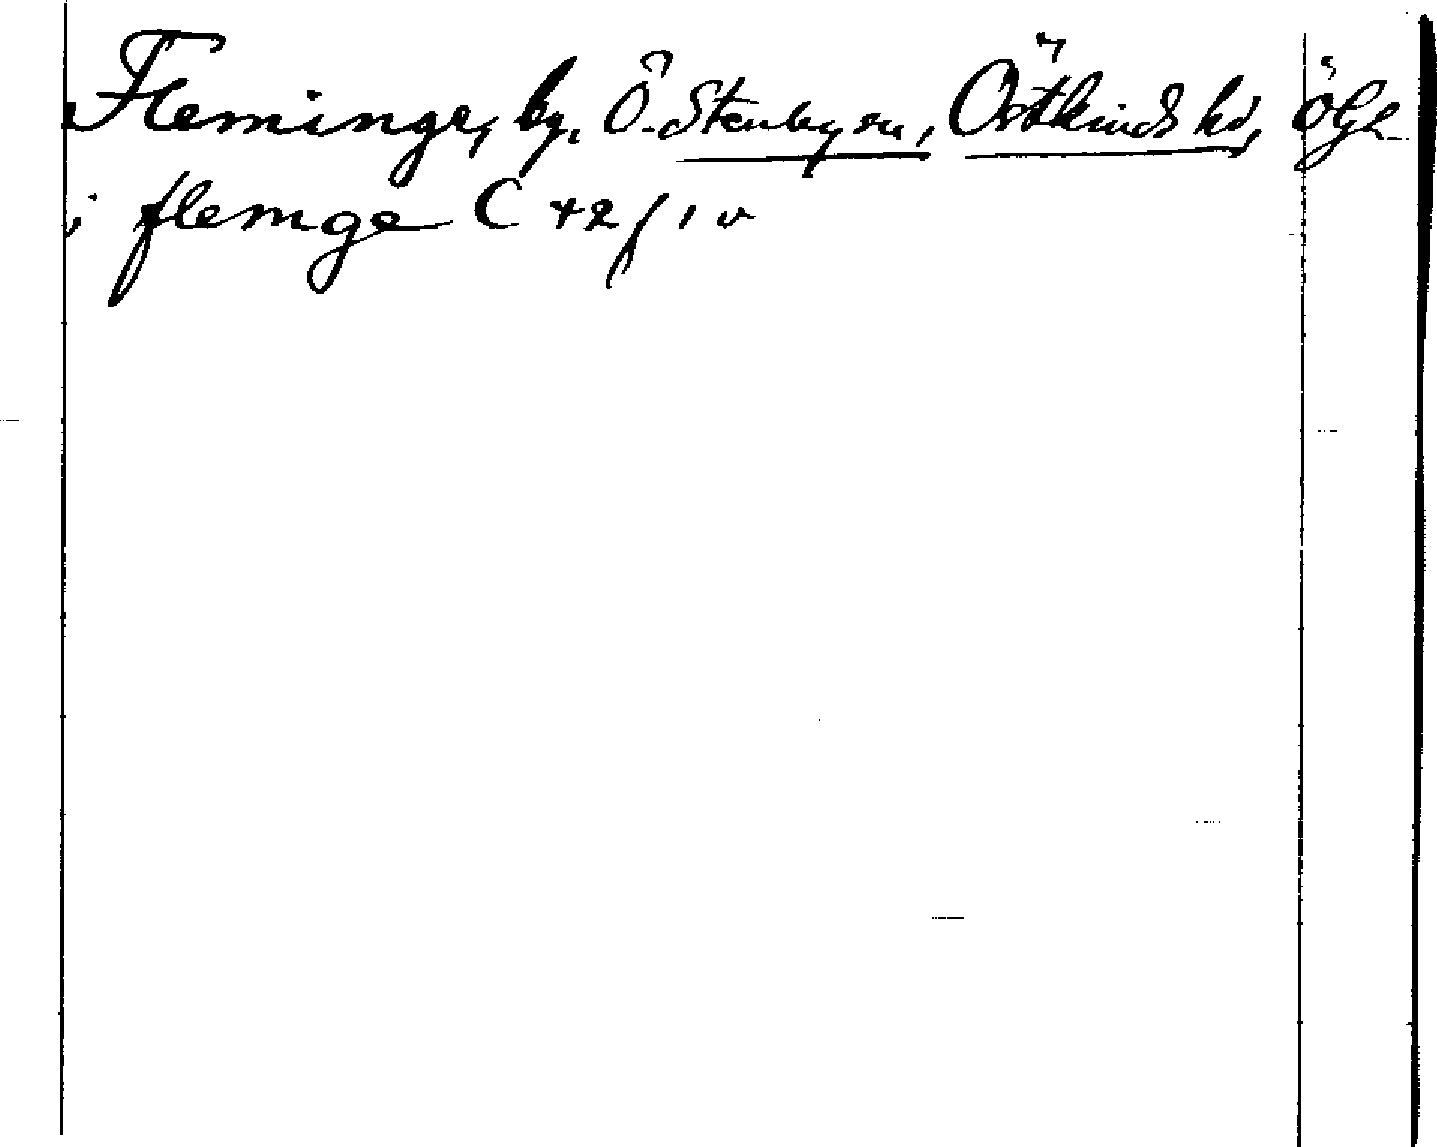 Fleminge, by, Ö. Stenby sn, Östkinds hd, Ögl.
i flemge C 42 f 1 v